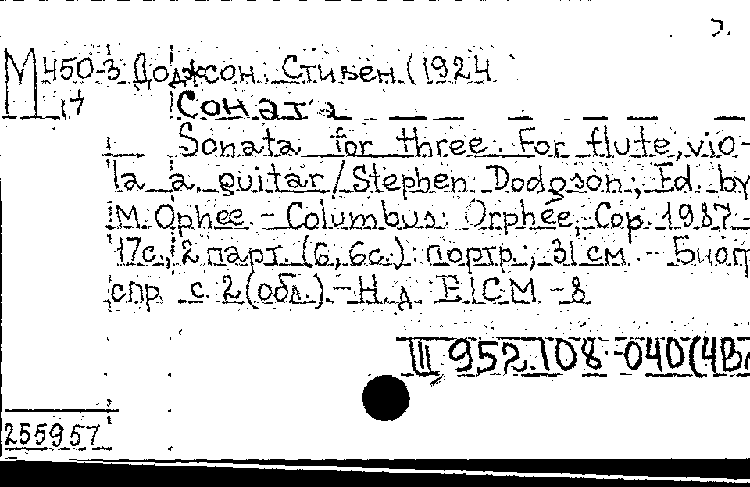 М 450-3 Доджсон. Стивен (1924
17 Соната
Sonata for three. For flute, vio-
la a. guitar / Stephen Dodgson; Ed. by
M. Ophee. - Columbus: Orphée, Cop. 1987 -
17с., 2 парт. (6, 6с.): портр.; 31 см. - Биогр
спр. с. 2 (обл.) - Н.д. EICM -8
III 952.108-040(4Вл
255957